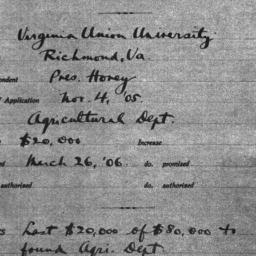 Virginia Union University
Richmond, Va.
ndent Pres. Hovey
Application Nov. 4, '05
Agricultural Dept.
$20,000 Increase
ed March 26, '06. do. promised
authorized do. authorized
s Last $20,000 of $80,000 to
found Agri. Dept